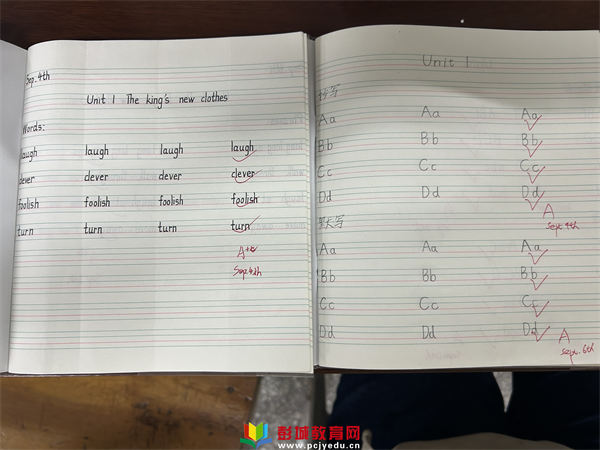 Sep. 4th
Unit 1 The king's new clothes
Words:
laugh laugh laugh laugh
clever clever clever clever
foolish foolish foolish foolish
turn turn turn turn
Sep 4th
Unit 1
抄写
Aa Aa Aa
Bb Bb Bb
Cc Cc Cc
Dd Dd Dd
A
Sept 4th
默大写
Aa Aa Aa
Bb Bb Bb
Cc Cc Cc
Dd Dd Dd
A
Sept. 6th
彭城教育网
www.pcjyedu.cn